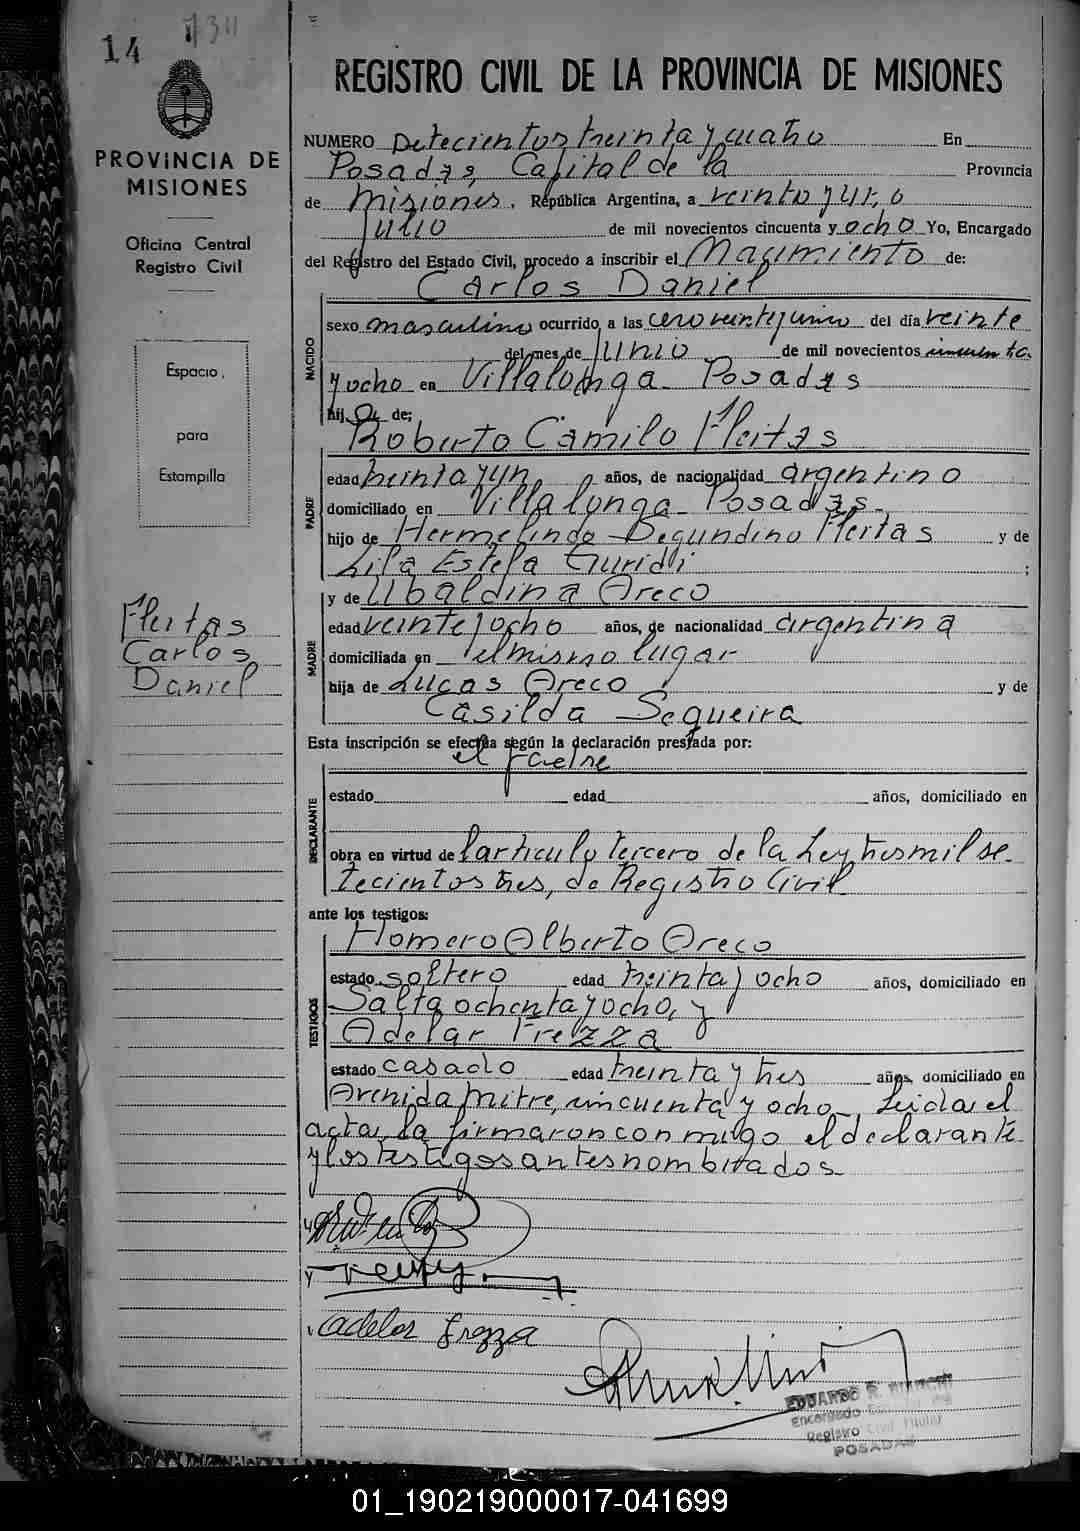 14
734
PROVINCIA DE
MISIONES
Oficina Central
Registro Civil
Espacio
para
Estampilla
Fleitas
Carlos
Daniel
REGISTRO CIVIL DE LA PROVINCIA DE MISIONES
NUMERO Setecientos treinta y cuatro En
Posadas, Capital de la Provincia
de Misiones, República Argentina, a veintayuno
Julio de mil novecientos cincuenta y ocho Yo, Encargado
del Registro del Estado Civil, procedo a inscribir el Nacimiento de:
Carlos Daniel
NACIDO
sexo masculino ocurrido a las cero veinticinco del día veinte
del mes de Junio de mil novecientos cincuenta
y ocho en Villalonga - Posadas
hijo de:
Roberto Camilo Fleitas
PADRE
edad treinta y un años, de nacionalidad argentino
domiciliado en Villalonga - Posadas
hijo de Hermelindo Segundino Fleitas y de
Lila Estela Guridi ;
y de Ubaldina Oreco
MADRE
edad veinte y ocho años, de nacionalidad argentina
domiciliada en el mismo lugar
hija de Lucas Oreco y de
Casilda Sequeira
Esta inscripción se efectúa según la declaración prestada por:
el padre
DECLARANTE
estado edad años, domiciliado en
obra en virtud de l articulo tercero de la Ley tres mil se-
tecientos tres, de Registro Civil
ante los testigos:
TESTIGOS
Homero Alberto Oreco
estado soltero edad treinta y ocho años, domiciliado en
Salta ochenta y ocho, y
Adelar Frezza
estado casado edad treinta y tres años, domiciliado en
Avenida Mitre, cincuenta y ocho -, Leida el
acta, la firmaron conmigo el declarante
y los testigos antes nombrados
Adelar Frezza
EDUARDO R. BIANCHI
Encargado
Registro Civil
POSADAS
01_190219000017-041699